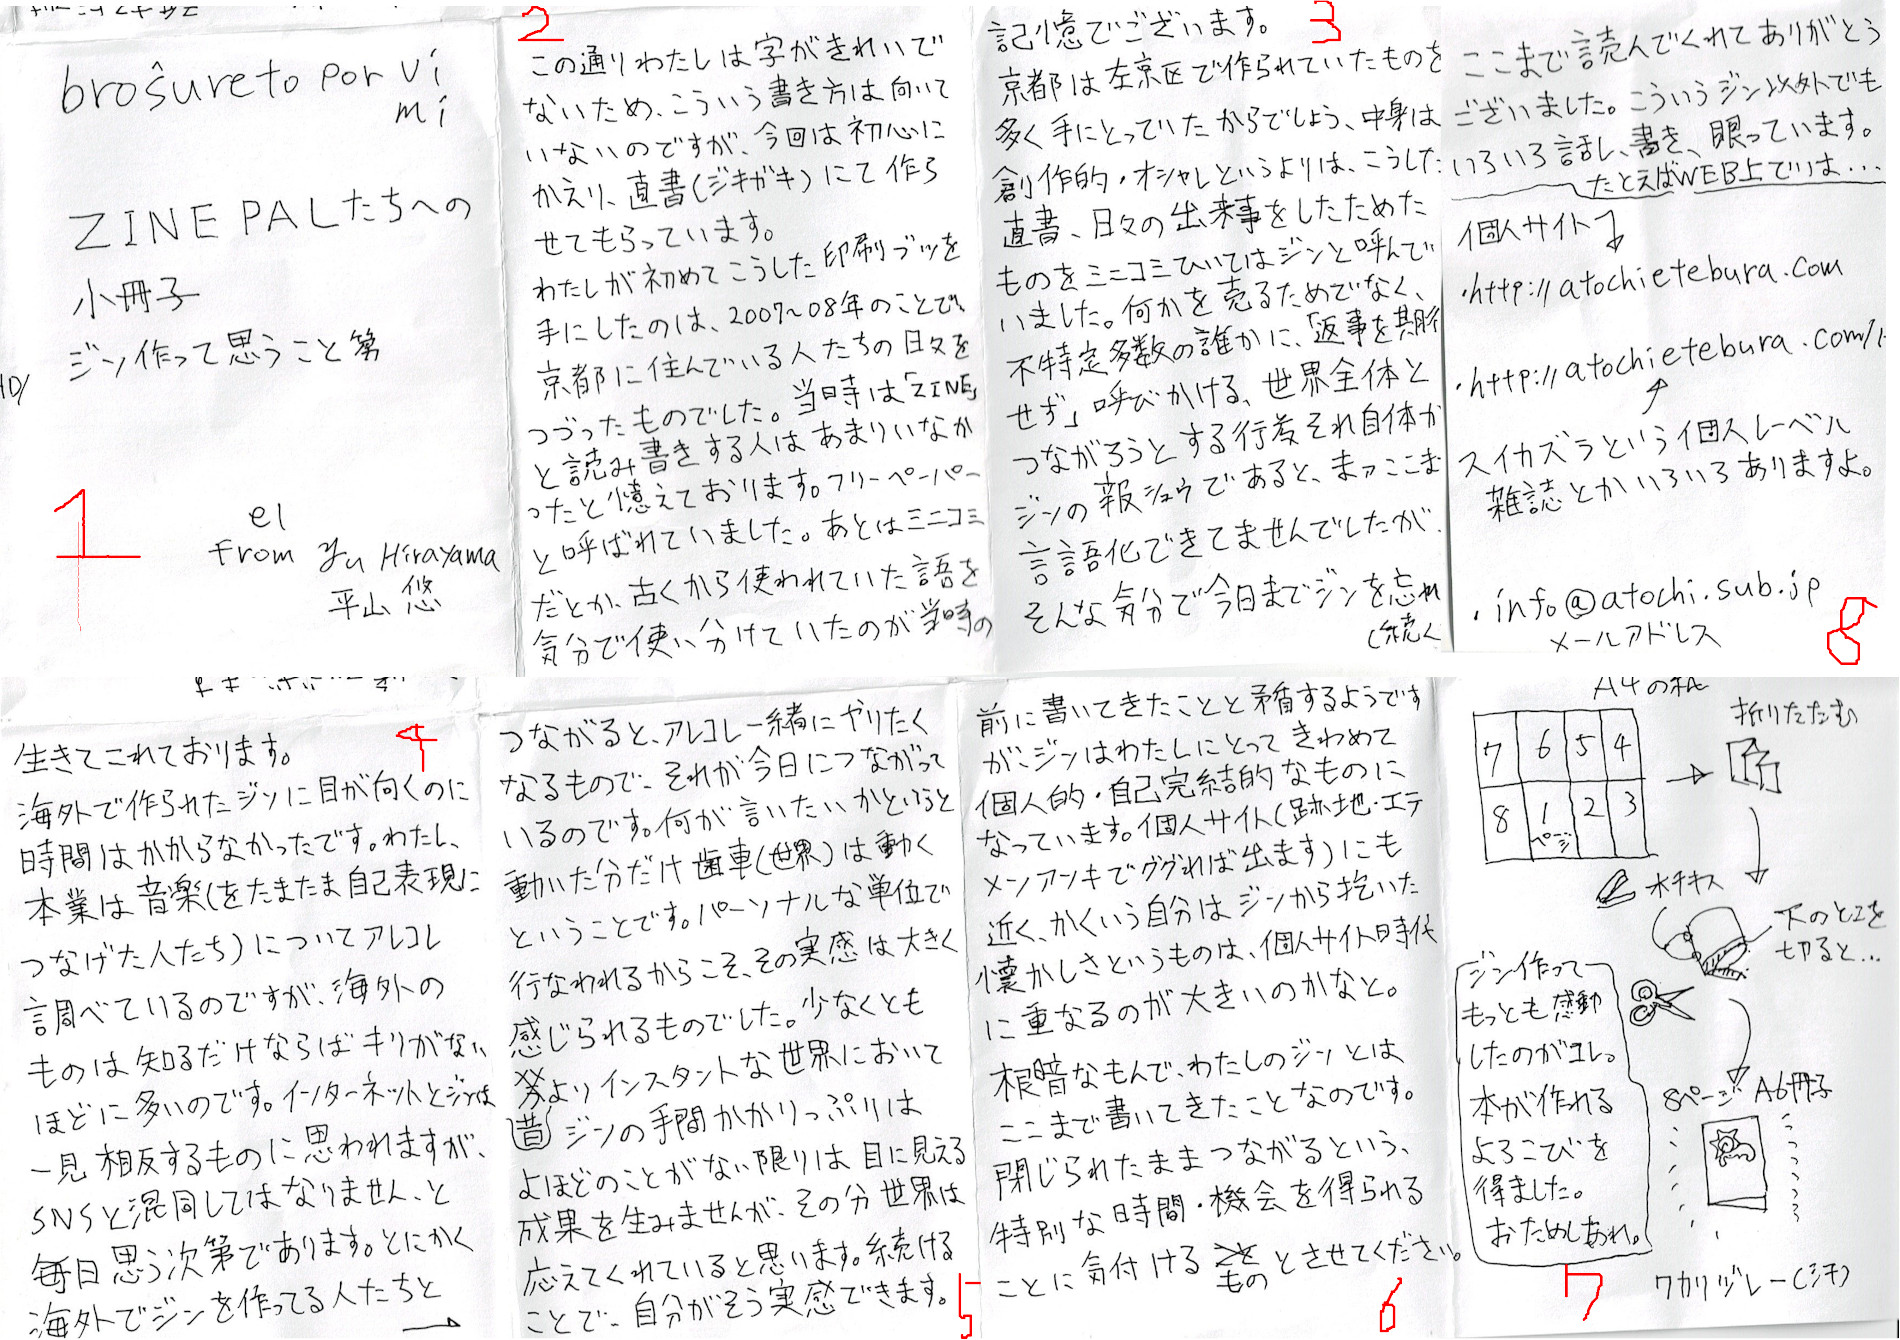 broŝureto por vi
mi
ZINE PALたちへの
小冊子
ジン作って思うこと等
el
From yu Hirayama
平山 悠
1
2
この通りわたしは字がきれいで
ないため、こういう書き方は向いて
いないのですが、今回は初心に
かえり、直書(ジキガキ)にて作ら
せてもらっています。
わたしが初めてこうした印刷ブツを
手にしたのは、2007〜08年のことで、
京都に住んでいる人たちの日々を
つづったものでした。当時は「ZINE」
と読み書きする人はあまりいなか
ったと憶えております。フリーペーパー
と呼ばれていました。あとはミニコミ
だとか、古くから使われていた語を
気分で使い分けていたのが当時の
3
記憶でございます。
京都は左京区で作られていたものを
多く手にとっていたからでしょう、中身は
創作的・オシャレというよりは、こうした
直書、日々の出来事をしたためた
ものをミニコミひいてはジンと呼んで
いました。何かを売るためでなく、
不特定多数の誰かに、「返事を期待
せず」呼びかける、世界全体と
つながろうとする行為それ自体が
ジンの報ショウであると、まァここま
言語化できてませんでしたが、
そんな気分で今日までジンを忘れ
(続く
4
生きてこれております。
海外で作られたジンに目が向くのに
時間はかからなかったです。わたし、
本業は音楽(をたまたま自己表現に
つなげた人たち)についてアレコレ
調べているのですが、海外の
ものは知るだけならばキリがない
ほどに多いのです。インターネットとジンは
一見相反するものに思われますが、
SNSと混同してはなりません、と
毎日思う次第であります。とにかく
海外でジンを作ってる人たちと
→
つながると、アレコレ一緒にやりたく
なるもので、それが今日につながって
いるのです。何が言いたいかというと
動いた分だけ歯車(世界)は動く
ということです。パーソナルな単位で
行なわれるからこそ、その実感は大きく
感じられるものでした。少なくとも
よりインスタントな世界において
昔 ジンの手間かかりっぷりは
よほどのことがない限りは目に見える
成果を生みませんが、その分世界は
応えてくれていると思います。続ける
ことで、自分がそう実感できます。
5
前に書いてきたことと矛盾するようです
が、ジンはわたしにとってきわめて
個人的・自己完結的なものに
なっています。個人サイト(跡地・エテ
メンアンキでググれば出ます)にも
近く、かくいう自分はジンから抱いた
懐かしさというものは、個人サイト時代
に重なるのが大きいのかなと。
根暗なもんで、わたしのジンとは
ここまで書いてきたことなのです。
閉じられたままつながるという、
特別な時間・機会を得られる
ことに気付けるこ‌ともの とさせてください。
6
A4の紙
7 6 5 4
8 1 2 3
ページ
折りたたむ
ホチキス
下のとこを
切ると…
8ページ A6冊子
ジン作って
もっとも感動
したのがコレ。
本が作れる
よろこびを
得ました。
おためしあれ。
ワカリヅレー(汗)
7
ここまで読んでくれてありがとう
ございました。こういうジン以外でも
いろいろ話し、書き、眼っています。
たとえばWEB上では…
個人サイト
・http://atochietebura.com
・http://atochietebura.com/
スイカズラという個人レーベル
雑誌とかいろいろありますよ。
・info@atochi.sub.jp
メールアドレス
8